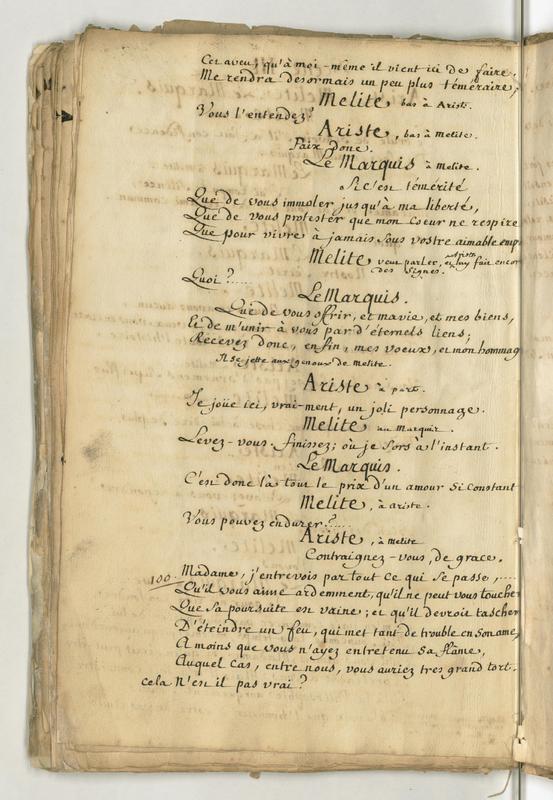 Cet aveu, qu'à moi-même il vient ici de faire,
Me rendra desormais un peu plus témeraire,
Melite, bas à Ariste.
Vous l'entendez?
Ariste, bas à Melite.
Paix donc.
Le Marquis à Melite.
Si c'est témérité
Que de vous immoler jusqu'à ma liberté,
Que de vous protester que mon Coeur ne respire
Que pour vivre à jamais sous vostre aimable emp
Melite veut parler, et Ariste luy fait encor
des Signes.
Quoi?.....
Le Marquis.
Que de vous offrir, et ma vie, et mes biens,
Et de m'unir à vous par d'éternels liens;
Recevez donc, enfin, mes voeux, et mon hommag
Il se jette aux genoux de Melite.
Ariste à part.
Je joüe ici, vrai-ment, un joli personnage.
Melite au Marquis.
Levez-vous. finissez; où je sors à l'instant.
Le Marquis.
C'est donc là tout le prix d'un amour si constant
Melite, à Ariste.
Vous pouvez endurer?.....
Ariste, à Melite
Contraignez-vous, de grace.
Madame, j'entrevois par tout ce qui se passe,.....
100. Qu'il vous aime ardemment, qu'il ne peut vous toucher
Que sa poursuite est vaine; et qu'il devroit tascher
D'éteindre un feu, qui met tant de trouble en son ame,
A moins que vous n'ayez entretenu sa flâme,
Auquel Cas, entre nous, vous auriez tres grand tort.
Cela N'est il pas vrai?